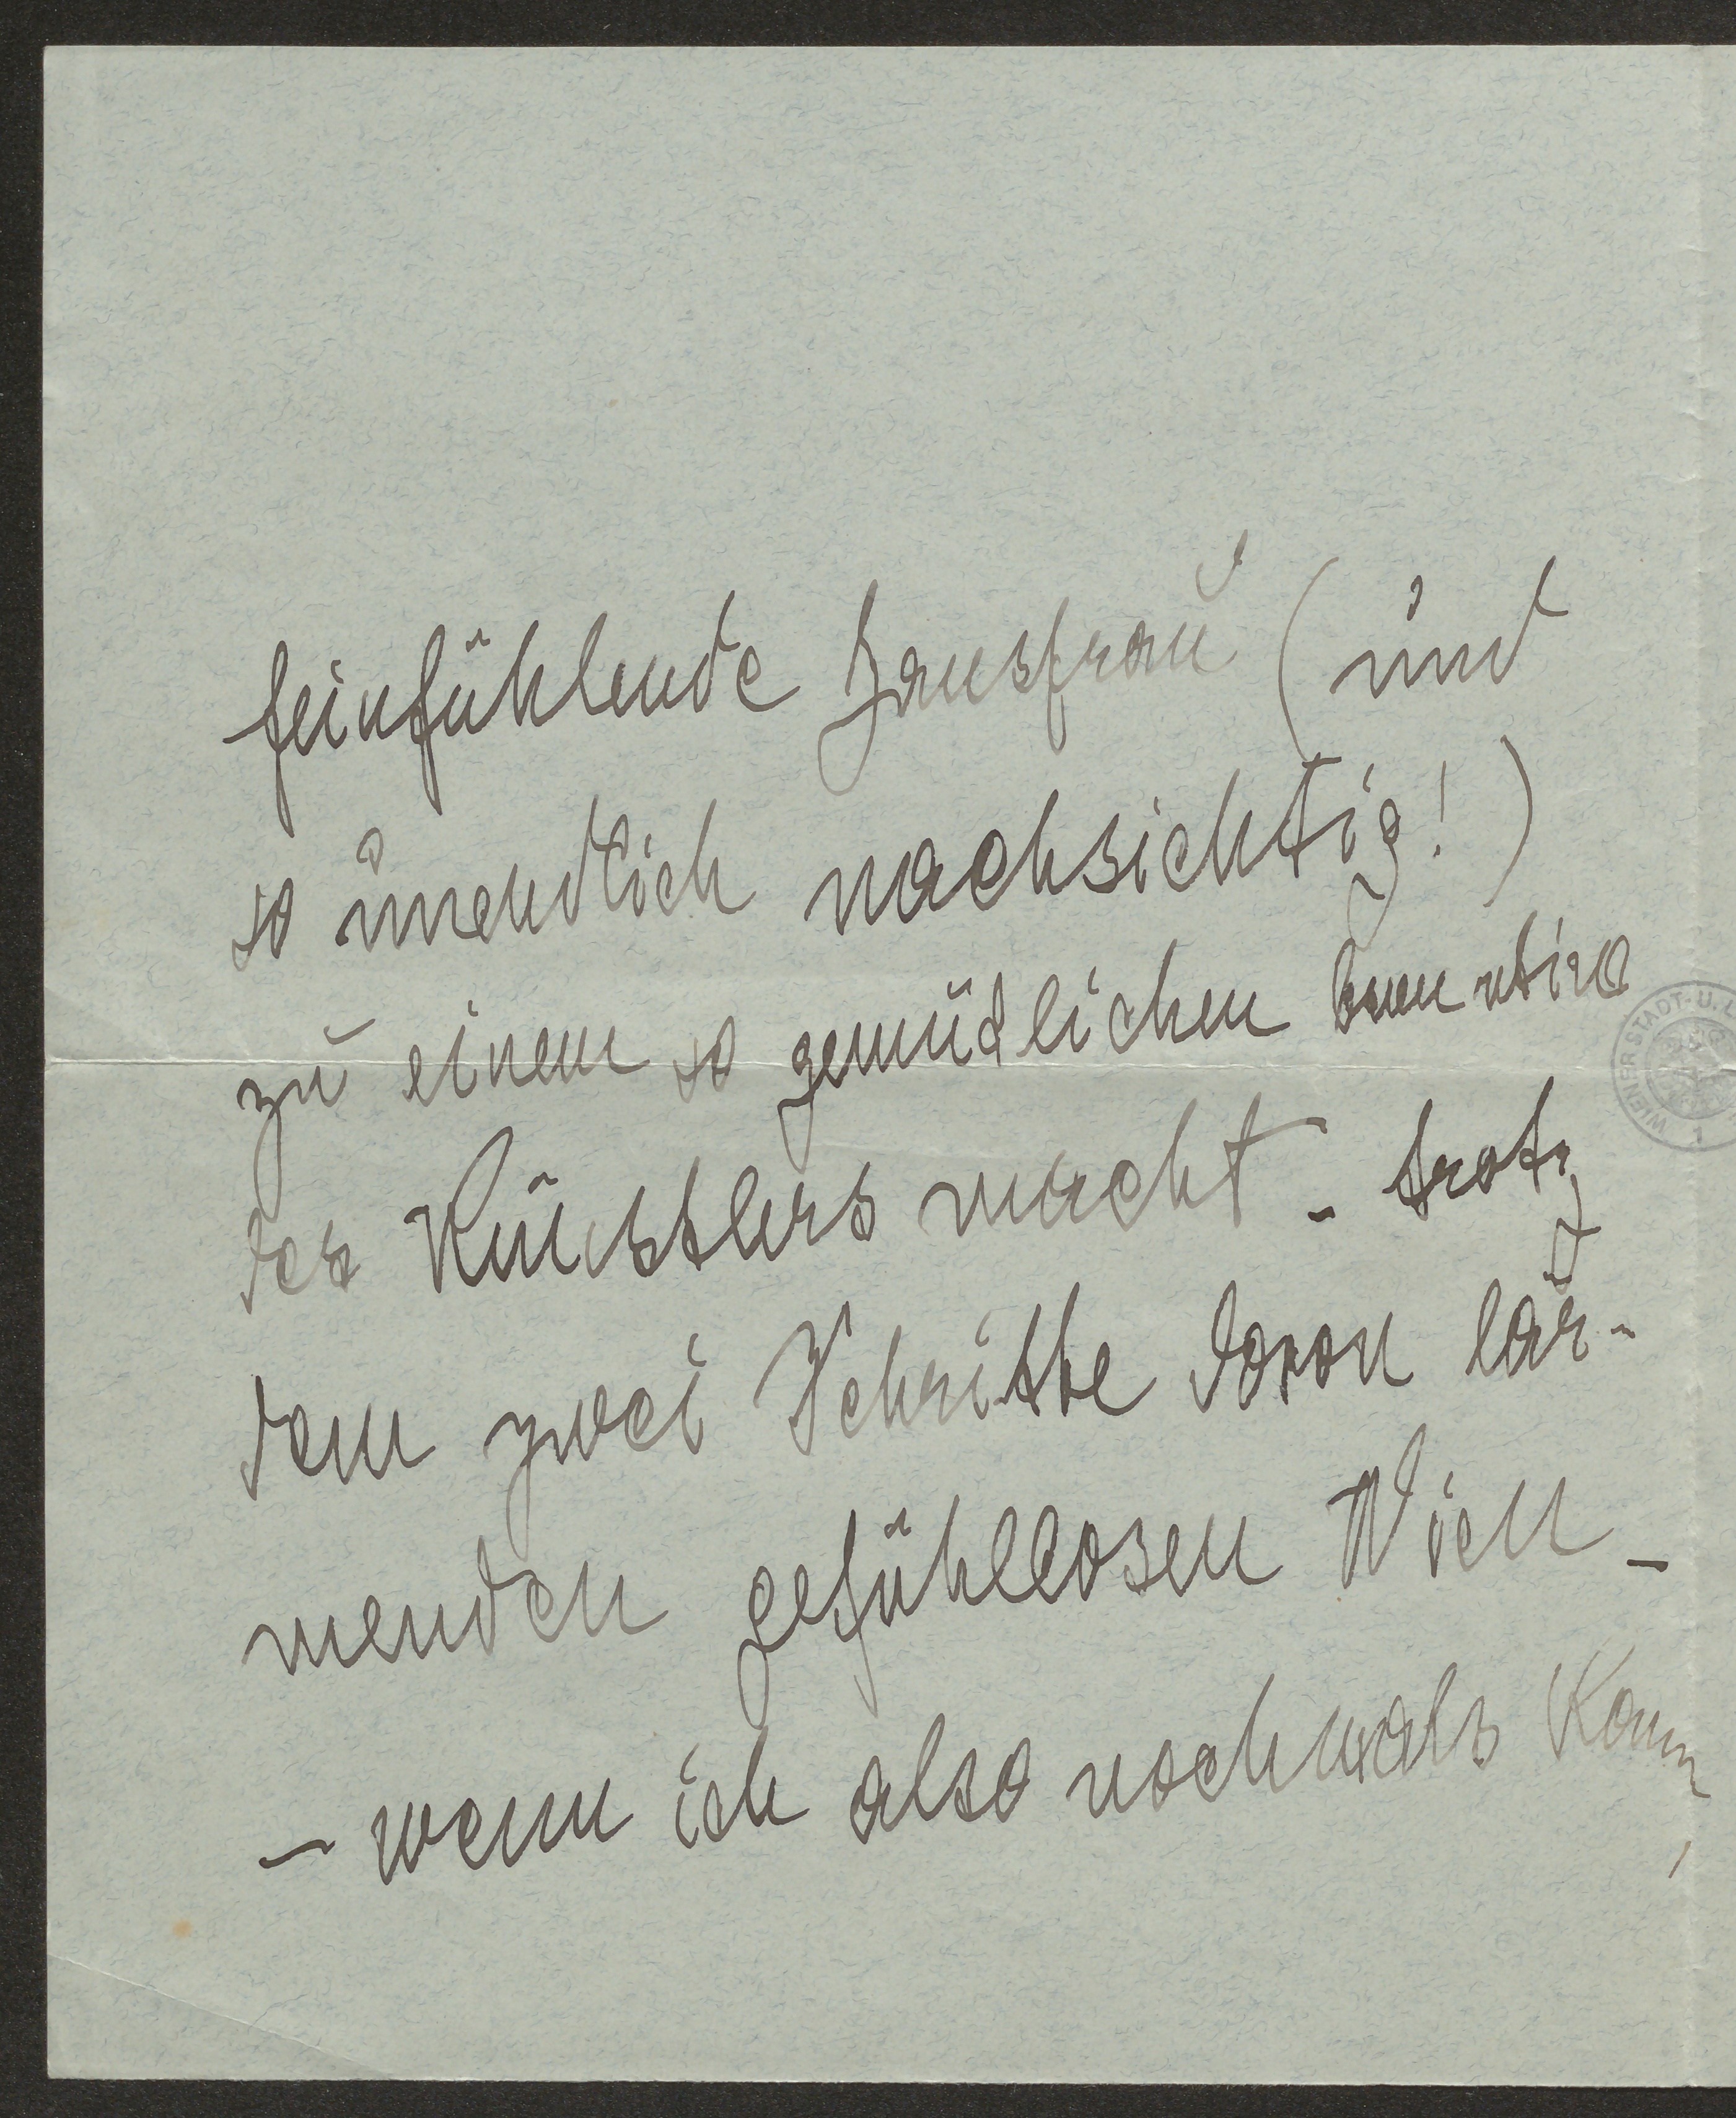 feinfühlende Hausfrau (und
so unendlich nachsichtig!)
zu einem so gemütlichen
des Künstlers macht - trotz
dem zwei Schritte davon lär-
menden gefühllosen Wien -
- wenn ich also nochmals kam,
WIENER STADT- U.